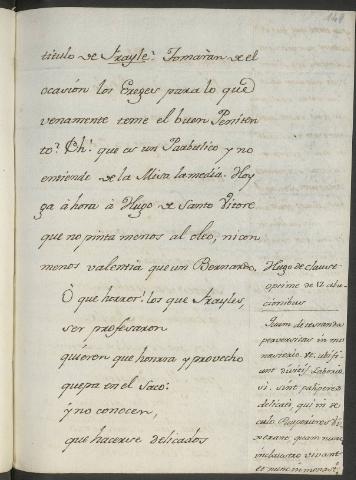 148
titulo de Frayle? Tomaràn de el
ocasión los Ereges para lo que
venamente teme el buen Peniten
to? Oh! que es un Parabulico y no
entiende de la Misa la media. Oy
ga àhora à Hugo de Santo Vitore
que no pinta menos al oleo, ni con
menos valentia que un Bernardo,
Ò que herror! los que Frayles,
ser profesaron
quieren que honrra y provecho
quepa en el Saco:
ÿ no conocen,
que hacerse delicados
Hugo de claustr
oprime de 12 abu
cionibus
Item detestanda
perversitas in mo
nasterio est, ubi fi
unt divites laborio
si. sint pauperes
delicati, qui in se
culo
quam nunc
in claustro vivant
et nunc in monast